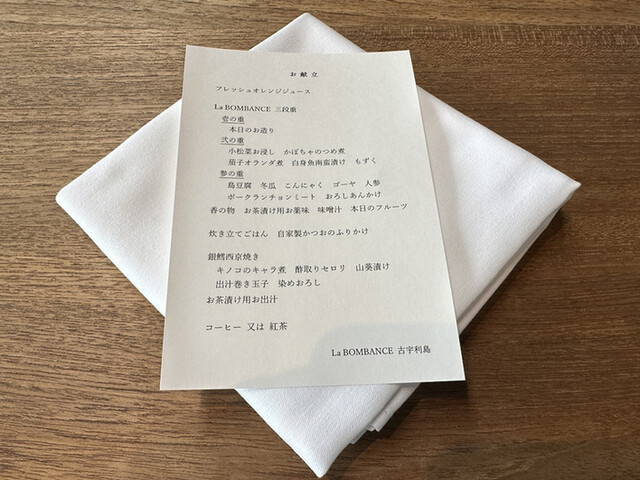 お献立
フレッシュオレンジジュース
La BOMBANCE 三段重
壱の重
本日のお造り
弐の重
小松菜お浸し かぼちゃのつめ煮
茄子オランダ煮 白身魚南蛮漬け もずく
参の重
島豆腐 冬瓜 こんにゃく ゴーヤ 人参
ポークランチョンミート おろしあんかけ
香の物 お茶漬け用お薬味 味噌汁 本日のフルーツ
炊き立てごはん 自家製かつおのふりかけ
銀鱈西京焼き
キノコのキャラ煮 酢取りセロリ 山葵漬け
出汁巻き玉子 染めおろし
お茶漬け用お出汁
コーヒー 又は 紅茶
La BOMBANCE 古宇利島